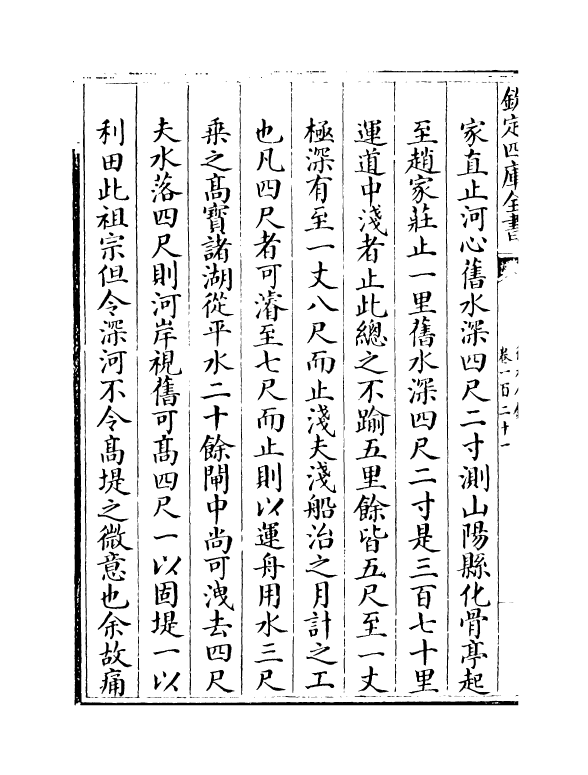 欽定四庫全書
卷一百二十一
家直止河心舊水深四尺二寸測山陽縣化骨亭起
至趙家莊止一里舊水深四尺二寸是三百七十里
運道中淺者止此總之不踰五里餘皆五尺至一丈
極深有至一丈八尺而止淺夫淺船治之月計之工
也凡四尺者可濬至七尺而止則以運舟用水三尺
乗之髙寳諸湖從平水二十餘閘中尚可洩去四尺
夫水落四尺則河岸視舊可髙四尺一以固堤一以
利田此祖宗但令深河不令髙堤之微意也余故痛